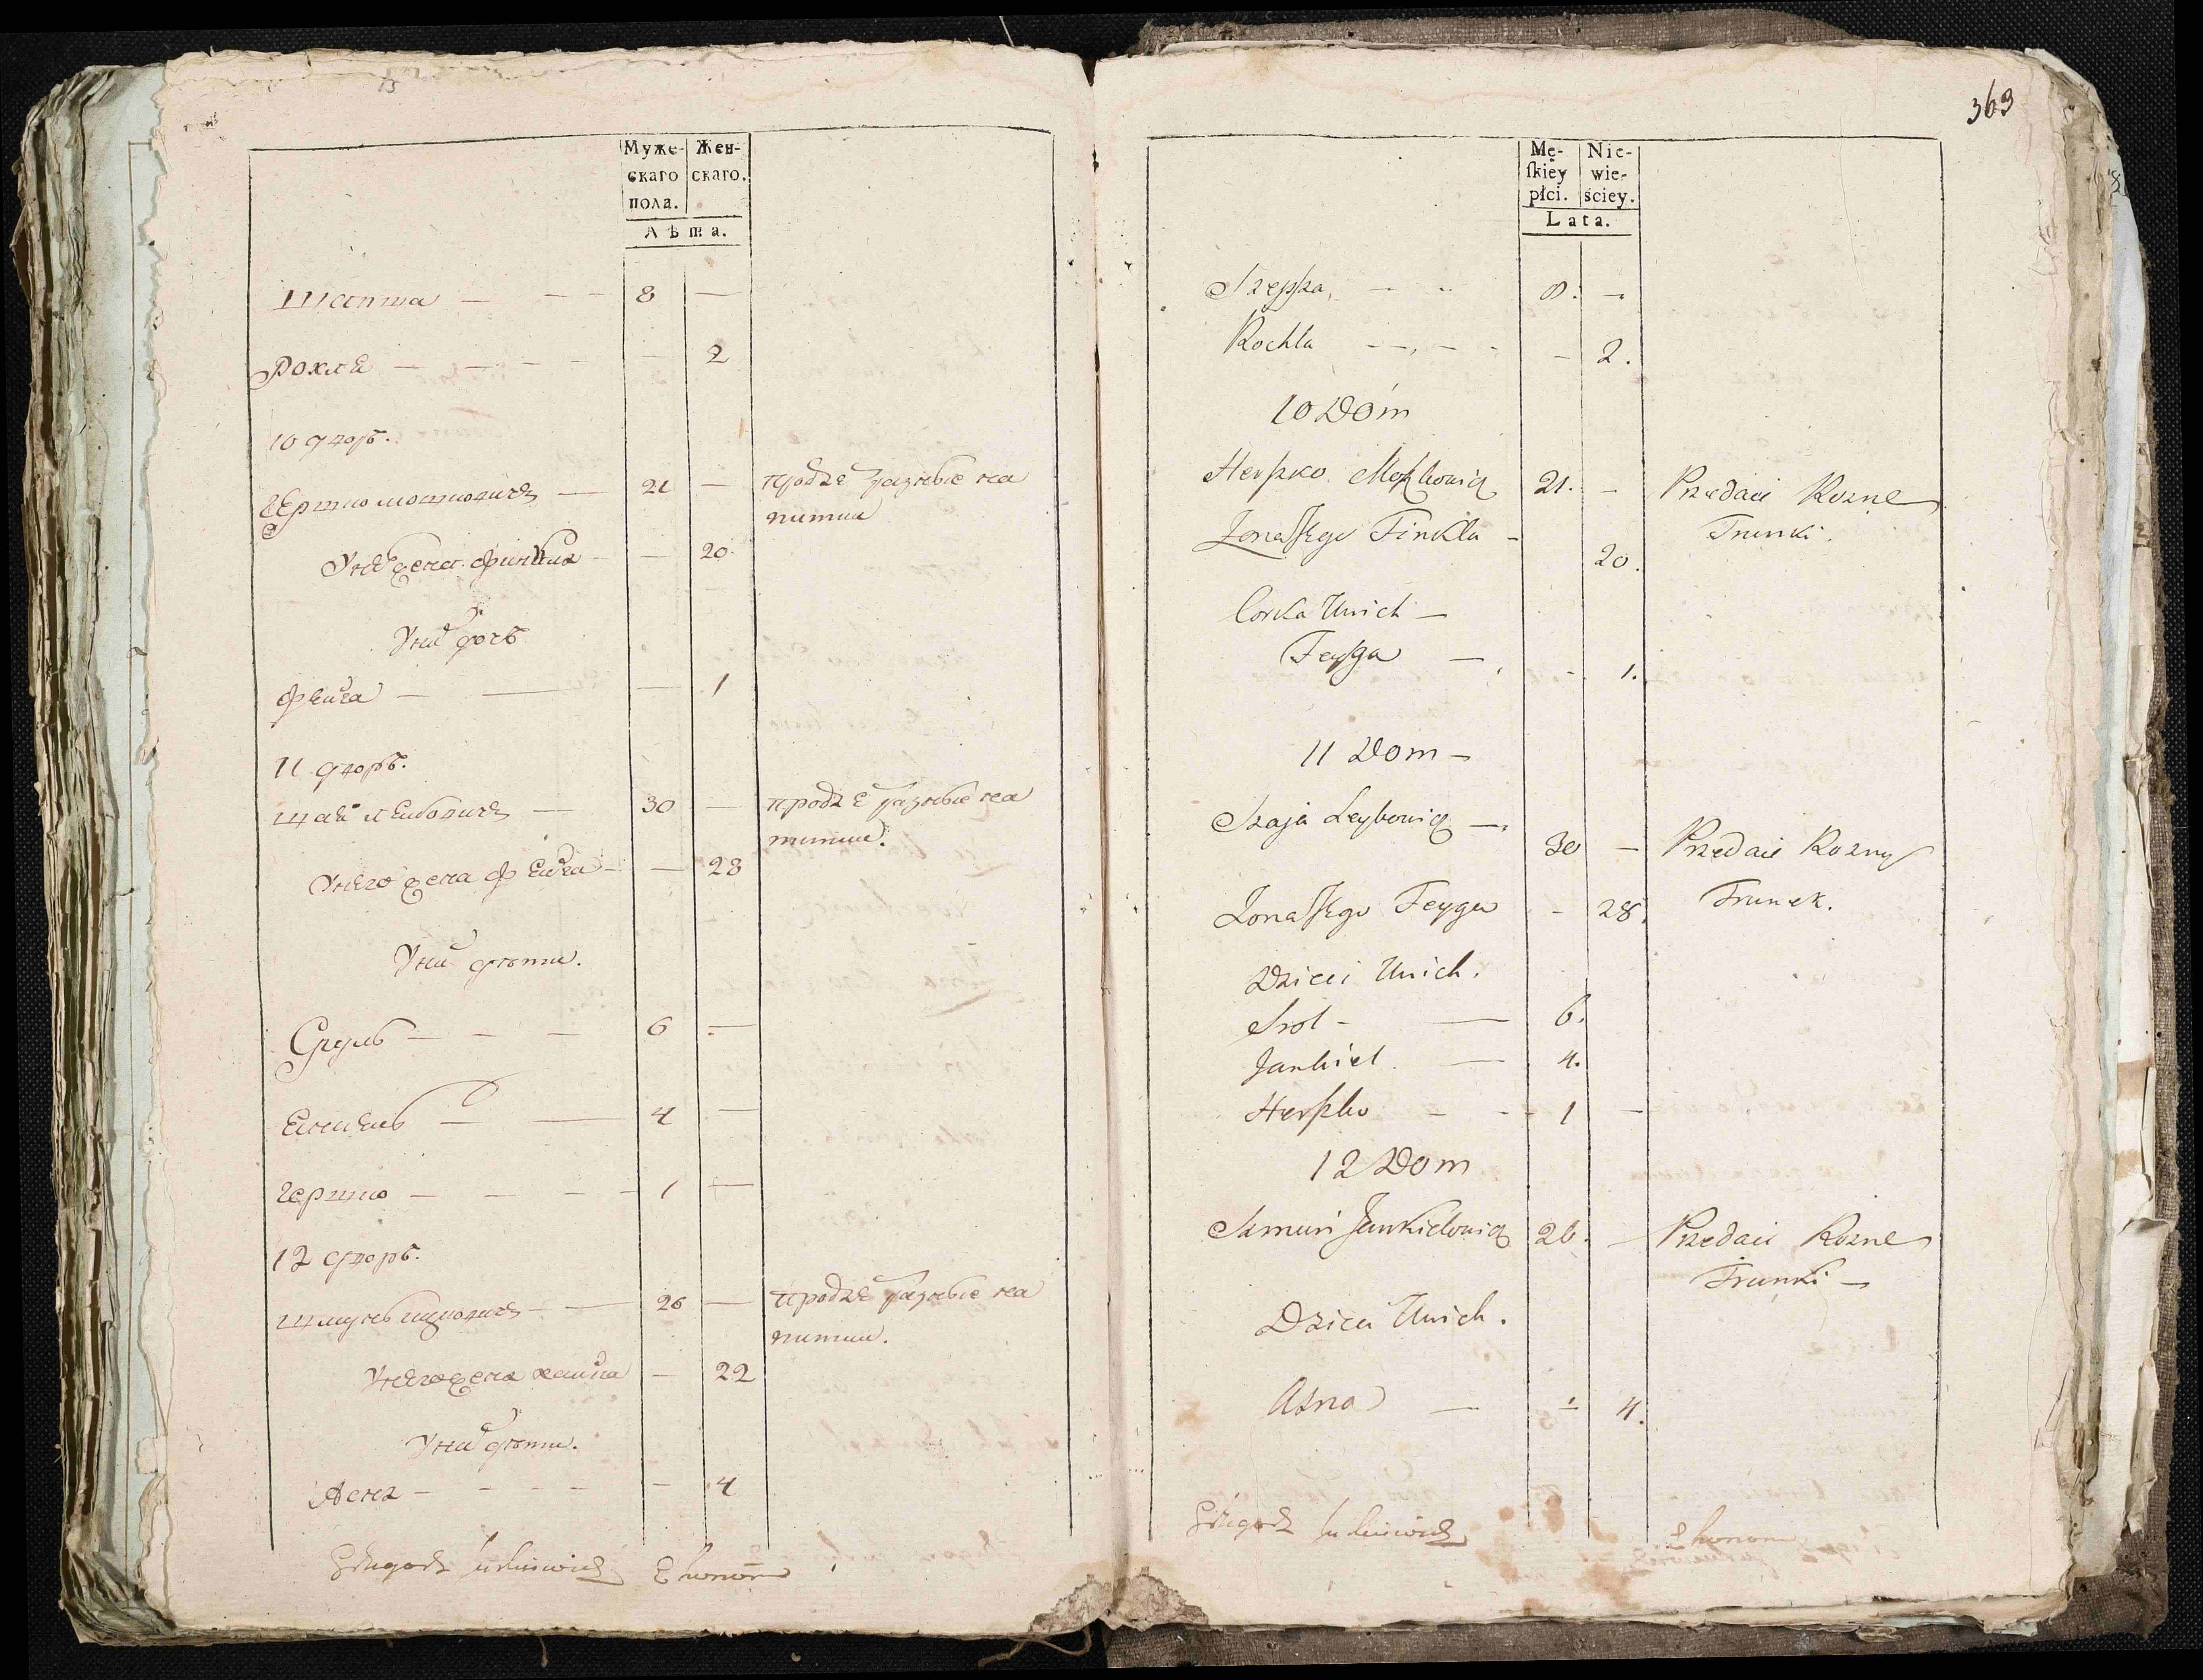 Муже-
скаго
пола.
Жен-
скаго.
Лѣта.
Шепша — — — 8 —
Рохля — — — — — 2
10 дворъ.
Гершко Мошковичъ — 21 — продае разные на
питки
У не жена Финкля — — 20
У ний дочь
Фейга — — — 1
11 дворъ.
Шая Лейбовичъ — 30 — продае разные на
питки.
У него жена Фейга — — 28
У ний дѣти.
Сруль — — — 6 —
Еінкель — — 4 —
Гершко — — — — 1 —
12 дворъ.
Шмунь — — 26 — продае разные на
питки.
У него жена Хайка — 22
У ний дѣти.
Асна — — — — — 4
Ekonom
363
Mę-
ſkiey
płci.
Nie-
wie-
ściey.
Lata.
Szepsza — 8. —
Rochla — — — — 2.
10 Dom
Herszko Moszkowicz 21. — Przedaie Rozne
Trunki.
Zona Jego Finkla — 20.
Corka Unich —
Feyga — — 1.
11 Dom —
Szaja Leybowicz — 30 — Przedaie Rozny
Trunek.
Zona Jego Feyga — 28.
Dzieci Unich.
Srol — — 6.
Jankiel — 4.
Herszko — — 1 —
12 Dom
Szmun Jankielowicz 26. — Przedaie Rozne
Trunki —
Dzieci Unich.
Asna — — 4.
Ekonom